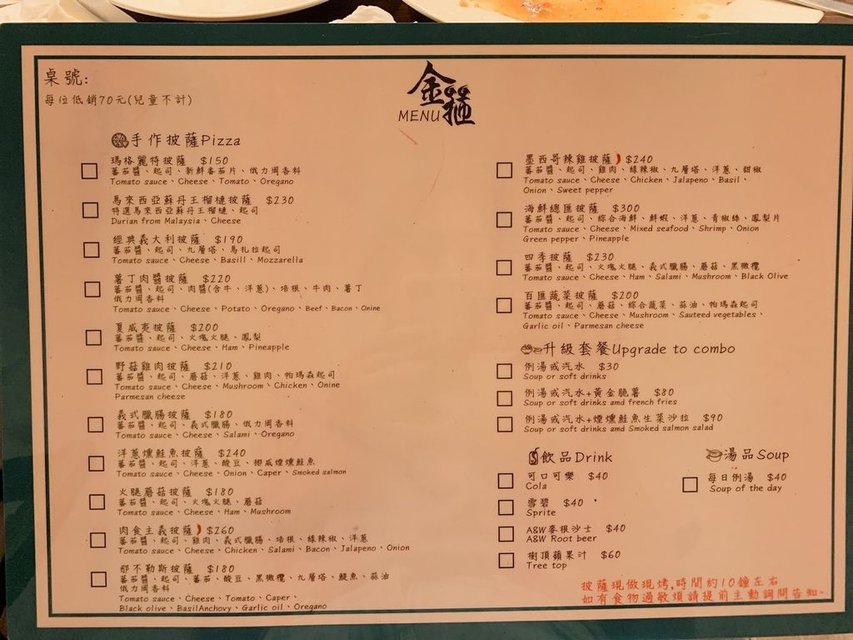 桌號:
每位低銷70元(兒童不計)
金箍
MENU
手作披薩Pizza
瑪格麗特披薩 $150
蕃茄醬、起司、新鮮番茄片、俄力岡香料
Tomato sauce、Cheese、Tomato、Oregano
馬來西亞蘇丹王榴槤披薩 $230
特選馬來西亞蘇丹王榴槤、起司
Durian from Malaysia、Cheese
經典義大利披薩 $190
蕃茄醬、起司、九層塔、馬扎拉起司
Tomato sauce、Cheese、Basill、Mozzarella
薯丁肉醬披薩 $220
蕃茄醬、起司、肉醬(含牛、洋蔥)、培根、牛肉、薯丁
俄力岡香料
Tomato sauce、Cheese、Potato、Oregano、Beef、Bacon、Onine
夏威夷披薩 $200
蕃茄醬、起司、火塊火腿、鳳梨
Tomato sauce、Cheese、Ham、Pineapple
野菇雞肉披薩 $210
蕃茄醬、起司、蘑菇、洋蔥、雞肉、帕瑪森起司
Tomato sauce、Cheese、Mushroom、Chicken、Onine
Parmesan cheese
義式臘腸披薩 $180
蕃茄醬、起司、義式臘腸、俄力岡香料
Tomato sauce、Cheese、Salami、Oregano
洋蔥燻鮭魚披薩 $240
蕃茄醬、起司、洋蔥、酸豆、挪威煙燻鮭魚
Tomato sauce、Cheese、Onion、Caper、Smoked salmon
火腿蘑菇披薩 $180
蕃茄醬、起司、火塊火腿、蘑菇
Tomato sauce、Cheese、Ham、Mushroom
肉食主義披薩 $260
蕃茄醬、起司、雞肉、義式臘腸、培根、綠辣椒、洋蔥
Tomato sauce、Cheese、Chicken、Salami、Bacon、Jalapeno、Onion
那不勒斯披薩 $180
蕃茄醬、起司、蕃茄、酸豆、黑橄欖、九層塔、鯷魚、蒜油
俄力岡香料
Tomato sauce、Cheese、Tomato、Caper、
Black olive、BasilAnchovy、Garlic oil、Oregano
墨西哥辣雞披薩 $240
蕃茄醬、起司、雞肉、綠辣椒、九層塔、洋蔥、甜椒
Tomato sauce、Cheese、Chicken、Jalapeno、Basil、
Onion、Sweet pepper
海鮮總匯披薩 $300
蕃茄醬、起司、綜合海鮮、鮮蝦、洋蔥、青椒絲、鳳梨片
Tomato sauce、Cheese、Mixed seafood、Shrimp、Onion
Green pepper、Pineapple
四季披薩 $230
蕃茄醬、起司、火塊火腿、義式臘腸、蘑菇、黑橄欖
Tomato sauce、Cheese、Ham、Salami、Mushroom、Black Olive
百匯蔬菜披薩 $200
蕃茄醬、起司、蘑菇、綜合蔬菜、蒜油、帕瑪森起司
Tomato sauce、Cheese、Mushroom、Sauteed vegetables、
Garlic oil、Parmesan cheese
升級套餐Upgrade to combo
例湯或汽水 $30
Soup or soft drinks
例湯或汽水+黃金脆薯 $80
Soup or soft drinks and french fries
例湯或汽水+煙燻鮭魚生菜沙拉 $90
Soup or soft drinks and Smoked salmon salad
飲品Drink
可口可樂 $40
Cola
雪碧 $40
Sprite
A&W麥根沙士 $40
A&W Root beer
樹頂蘋果汁 $60
Tree top
湯品Soup
每日例湯 $40
Soup of the day
披薩現做現烤,時間約10鐘左右
如有食物過敏煩請提前主動詢問告知~